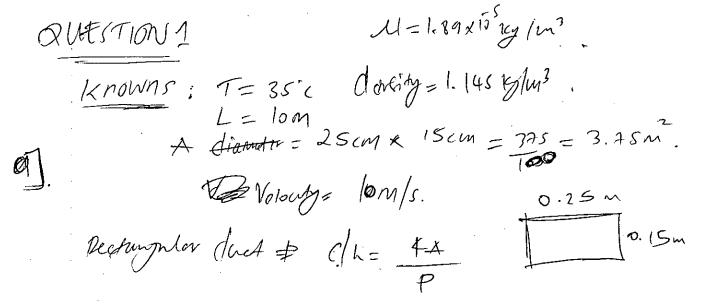 QUESTION 1
M = 1.89x10^-5 kg/m³.
Knowns : T = 35°c density = 1.145 kg/m³.
L = 10m
A diamater = 25cm * 15cm = 375/100 = 3.75m².
a].
Velocity = 10m/s.
0.25m
0.15m
Rectangular duct dh = 4A/P